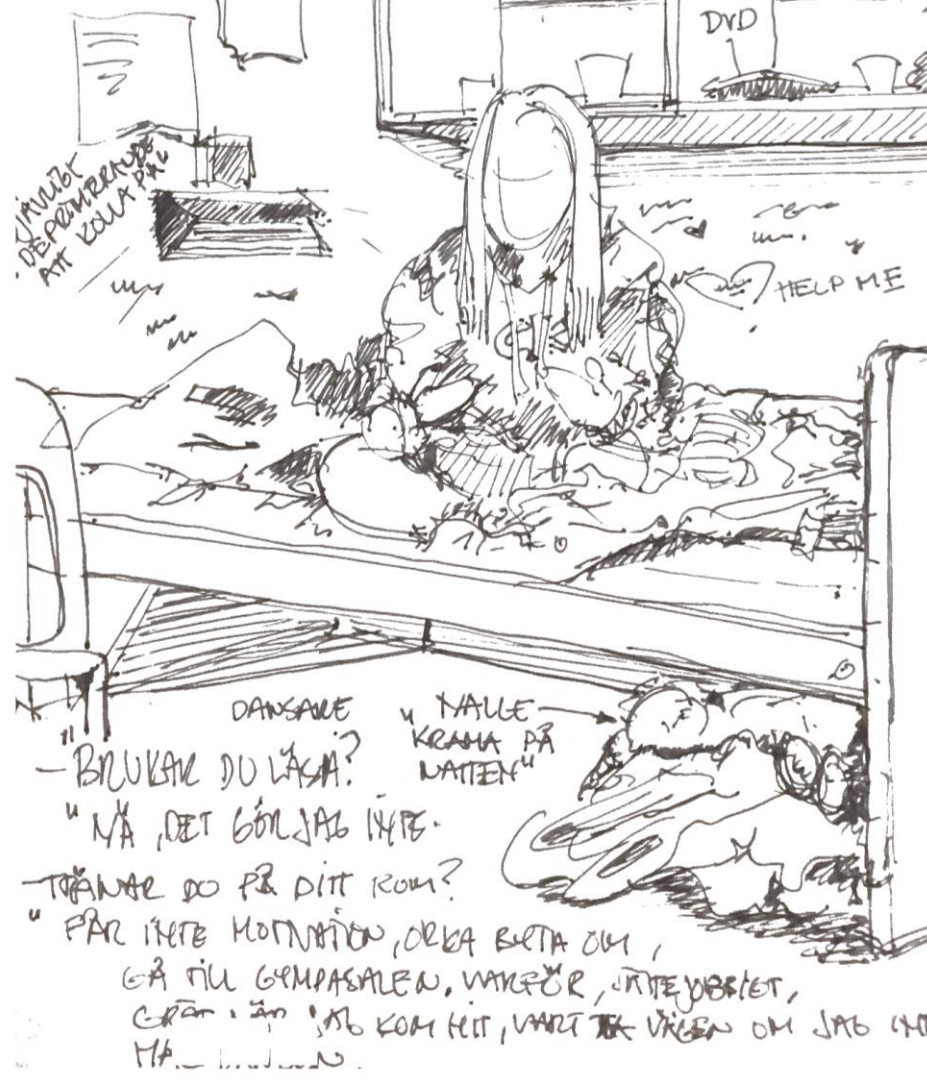 DVD
JÄVLIGT
DEPRIMERANDE
ATT KOLLA PÅ"
HELP ME
DANSARE
"NALLE
KRAMA PÅ
NATTEN"
– BRUKAR DU LÄSA?
"NÄ, DET GÖR JAG INTE.
– TRÄNAR DO PÅ DITT ROM?
"FÅR INTE MOTIVATION, ORKA BYTA OM,
GÅ TILL GYMPASALEN. VARFÖR, JÄTTEJOBBIGT,
JAG KOM HIT, VART TA VÄGEN OM JAG